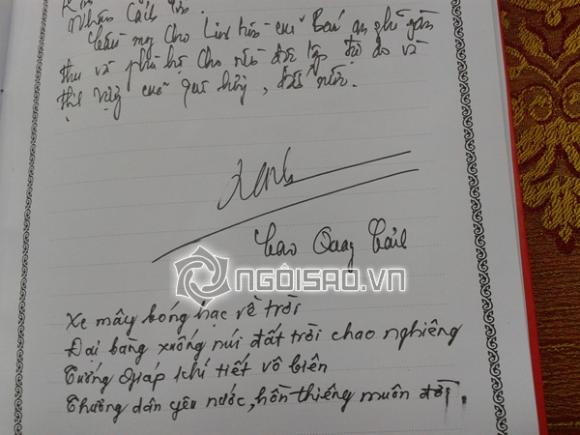 Nhân Cách lớn.
Cầu mong Cho Linh hồn cuả Bác an nghỉ ngàn
thu và phù hộ Cho nền độc lập tự do và
cuả quê hương, đất nước.
Cao Quang
NGÔISAO.VN
Xe mây bóng hạc về trời
Đại bàng xuống núi đất trời chao nghiêng
Tướng Giáp khí tiết vô biên
Thương dân yêu nước, hồn thiêng muôn đời.